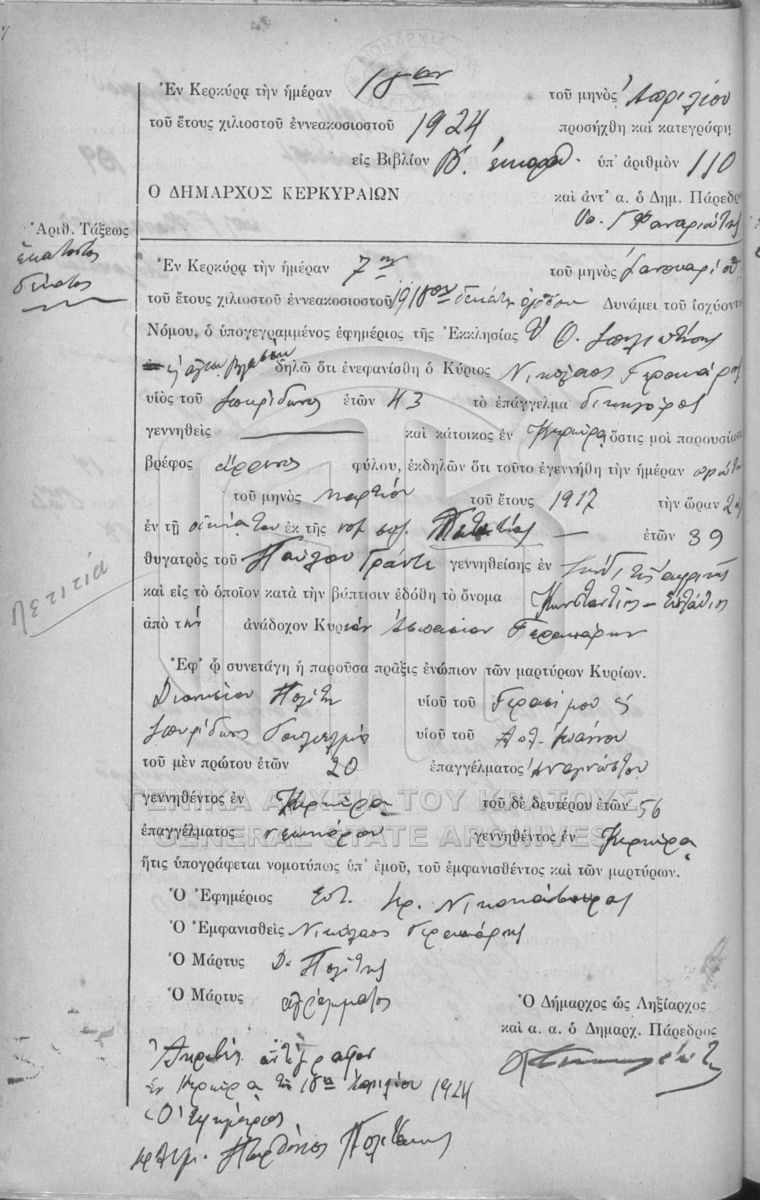 Ἐν Κερκύρᾳ τὴν ἡμέραν 18ην τοῦ μηνὸς Ἀπριλίου
τοῦ ἔτους χιλιοστοῦ ἐννεακοσιοστοῦ 1924 προσήχθη καὶ κατεγράφη
εἰς Βιβλίον Β. ὑπ' ἀριθμὸν 110
Ο ΔΗΜΑΡΧΟΣ ΚΕΡΚΥΡΑΙΩΝ καὶ ἀντ' α. ὁ Δημ. Πάρεδρος
Φαναριώτης
Ἀριθ. Τάξεως
ἑκατοστὸς
δέκατος
Ἐν Κερκύρᾳ τὴν ἡμέραν 7ην τοῦ μηνὸς Ἰανουαρίου
τοῦ ἔτους χιλιοστοῦ ἐννεακοσιοστοῦ 1918ου δεκάτου ὀγδόου Δυνάμει τοῦ ἰσχύοντος
Νόμου, ὁ ὑπογεγραμμένος ἐφημέριος τῆς Ἐκκλησίας Υ. Θ. Σπηλιωτίσσης
δηλῶ ὅτι ἐνεφανίσθη ὁ Κύριος Νικόλαος Γερακάρης
υἱὸς τοῦ Σπυρίδωνος ἐτῶν 43 τὸ ἐπάγγελμα δικηγόρος
γεννηθεὶς — καὶ κάτοικος ἐν Κερκύρᾳ ὅστις μοὶ παρουσίασε
βρέφος ἄρρενος φύλου, ἐκδηλῶν ὅτι τοῦτο ἐγεννήθη τὴν ἡμέραν πρώτην
τοῦ μηνὸς Μαρτίου τοῦ ἔτους 1917 τὴν ὥραν 2
ἐν τῇ οἰκίᾳ του ἐκ τῆς νομ. συζ. — ἐτῶν 39
θυγατρὸς τοῦ Παύλου γεννηθείσης ἐν
Λετιτία
καὶ εἰς τὸ ὁποῖον κατὰ τὴν βάπτισιν ἐδόθη τὸ ὄνομα Κωνσταντῖνος –
ἀπὸ τὴν ἀνάδοχον Κυρίαν Ἀσπασίαν Γερακάρη
Ἐφ' ᾧ συνετάγη ἡ παροῦσα πρᾶξις ἐνώπιον τῶν μαρτύρων Κυρίων.
Διονυσίου Πολίτη υἱοῦ τοῦ Γερασίμου
Σπυρίδωνος υἱοῦ τοῦ Ἰωάννου
τοῦ μὲν πρώτου ἐτῶν 20 ἐπαγγέλματος ἀναγνώστου
γεννηθέντος ἐν Κερκύρᾳ τοῦ δὲ δευτέρου ἐτῶν 56
ἐπαγγέλματος νεωκόρου γεννηθέντος ἐν Κερκύρᾳ
ἥτις ὑπογράφεται νομοτύπως ὑπ' ἐμοῦ, τοῦ ἐμφανισθέντος καὶ τῶν μαρτύρων.
Ὁ Ἐφημέριος
Ὁ Ἐμφανισθεὶς Νικόλαος Γερακάρης
Ὁ Μάρτυς Δ. Πολίτης
Ὁ Μάρτυς ἀγράμματος
Ὁ Δήμαρχος ὡς Ληξίαρχος
καὶ α. α. ὁ Δημαρχ. Πάρεδρος
Ἀκριβὲς ἀντίγραφον
Ἐν Κερκύρᾳ τῇ 18ῃ Ἀπριλίου 1924
Ὁ Ἐφημέριος
Παρθένιος Πολίτης
ΓΕΝΙΚΑ ΑΡΧΕΙΑ ΤΟΥ ΚΡΑΤΟΥΣ
GENERAL STATE ARCHIVES